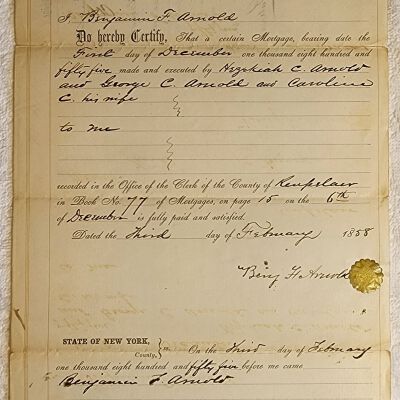 I Benjamin F. Arnold
Do hereby Certify, That a certain Mortgage, bearing date the
First day of December one thousand eight hundred and
fifty five made and executed by Hezekiah C. Arnold
and George C. Arnold and Caroline
C. his wife
to me
recorded in the Office of the Clerk of the County of Rensselaer
in Book No. 77 of Mortgages, on page 15 on the 6th
of December is fully paid and satisfied.
Dated the Third day of February 1858
Benj F Arnold
STATE OF NEW YORK,
County, } ss. On the Third day of February
one thousand eight hundred and fifty five before me came
Benjamin F. Arnold